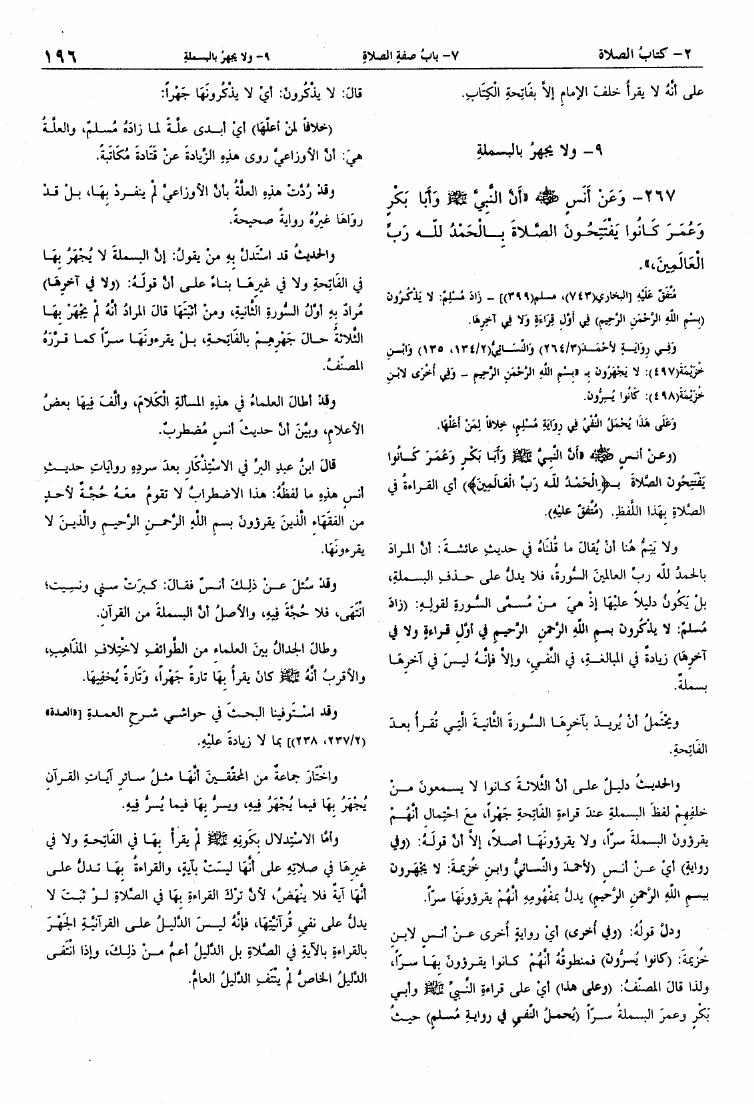 ٢- كتابُ الصلاة
٧- بابُ صفةِ الصلاةِ
٩- ولا يجهرُ بالبسملةِ
١٩٦
على أنَّهُ لا يقرأُ خلفَ الإمامِ إلاَّ بفَاتِحةِ الكِتَابِ.
٩- ولا يجهرُ بالبسملةِ
٢٦٧- وَعَنْ أَنَسٍ ﷺ «أَنَّ النَّبِيَّ ﷺ وَأَبَا بَكْرٍ
وَعُمَرَ كَانُوا يَفْتَتِحُونَ الصَّلاَةَ بِـالْحَمْدُ للَّـهِ رَبِّ
الْعَالَمِينَ».
مُتَّفَقٌ عَلَيْهِ [البخاري(٧٤٣)، مسلم(٣٩٩)] - زَادَ مُسْلِمٌ: لا يَذْكُرُونَ
(بِسْمِ اللَّهِ الرَّحْمَنِ الرَّحِيمِ) فِي أَوَّلِ قِرَاءَةٍ وَلا فِي آخِرِهَا.
وَفِي رِوَايَةٍ لأَحْمَدَ(٢٦٤/٣) وَالنَّسَائِيِّ(١٣٤/٢، ١٣٥) وَابْنِ
خُزَيْمَةَ(٤٩٧): لا يَجْهَرُونَ بِـ «بِسْمِ اللَّهِ الرَّحْمَنِ الرَّحِيمِ - وَفِي أُخْرَى لابْنِ
خُزَيْمَةَ(٤٩٨): كَانُوا يُسِرُّونَ.
وَعَلَى هَذَا يُحْمَلُ النَّفْيُ فِي رِوَايَةِ مُسْلِمٍ، خِلاَفاً لِمَنْ أَعَلَّهَا.
(وعن أنسٍ ﷺ «أَنَّ النَّبِيَّ ﷺ وَأَبَا بَكْرٍ وَعُمَرَ كَانُوا
يَفْتَتِحُونَ الصَّلاةَ بـ﴿الْحَمْدُ للَّهِ رَبِّ الْعَالَمِينَ﴾) أي القراءةَ في
الصلاةِ بِهَذَا اللَّفظِ. (مُتَّفقٌ عليهِ).
ولا يَتِمُّ هُنا أنْ يُقالَ ما قُلنَاهُ في حديثِ عائشةَ: أنَّ المرادَ
بالحمدُ للَّه ربِّ العالمينَ السُّورةُ، فلا يدلُّ على حذفِ البسملةِ،
بلْ يَكُونُ دليلاً عليْهَا إذْ هيَ مـنْ مُسـمَّى السُّـورةِ لقولـهِ: (زادَ
مُسلمٌ: لا يذكُرونَ بسمِ اللَّهِ الرَّحمنِ الرَّحيمِ في أوَّلِ قراءةٍ ولا في
آخرِهَا) زيادةً في المبالغـةِ، في النَّفـي، وإلاَّ فإنَّـهُ ليـسَ في آخرِهَـا
بسملةٌ.
ويَحْتَمِلُ أنْ يُرِيـدَ بـآخرِهَا السُّـورةَ الثَّانيـةَ الَّتِـي تُقـرأُ بعـدَ
الفَاتِحةِ.
والحديثُ دليلٌ علـى أنَّ الثَّلاثـةَ كـانوا لا يسـمعونَ مـنْ
خلفِهِمْ لفظَ البسملةِ عندَ قراءةِ الفَاتِحةِ جَهْراً، معَ احتِمالِ أنَّهُـمْ
يقرؤونَ البسملةَ سرًّا، ولا يقرؤونَهَـا أصـلاً، إلاَّ أنَّ قولَـهُ: (وفي
روايةٍ) أيْ عـنْ أنسٍ (لأحمدَ والنَّسائيِّ وابنِ خُزيمةَ: لا يَجْهَرونَ
ببسمِ اللَّهِ الرَّحمنِ الرَّحيمِ) يدلُّ بمفْهُومِهِ أنَّهُمْ يقرؤونَهَا سرًّا.
ودلَّ قولُهُ: (وفي أُخرَى) أيْ روايةٍ أُخرى عـنْ أنـسٍ لابـنِ
خُزيمةَ: (كانُوا يُسِرُّونَ) فمنطوقُهُ أنَّهُمْ كـانوا يقـرؤونَ بهَـا سـرًّا،
ولذا قالَ المصنِّفُ: (وعلى هذا) أيْ على قراءةِ النَّبيِّ ﷺ وأبي
بَكْرٍ وعمرَ البسملةَ سـرًّا (يُحملُ النَّفيُ في روايةِ مُسلمٍ) حيـثُ
قالَ: لا يذْكُرونَ: أيْ لا يذْكُرونَهَا جَهْراً:
(خلافاً لمنْ أعلَّهَا) أيْ أبـدى علَّـةً لمـا زادَهُ مُسـلمٌ، والعلَّـةُ
هيَ: أنَّ الأوزاعيَّ روى هذهِ الزِّيادةَ عنْ قتَادةَ مُكَاتَبةً.
وقدْ رُدَّتْ هذهِ العلَّةُ بأنَّ الأوزاعيَّ لمْ ينفـردْ بِهَـا، بـلْ قـدْ
رَوَاهَا غيرُهُ روايةً صحيحةً.
والحديثُ قد استُدلَّ بِهِ منْ يقولُ: إنَّ البسملةَ لا يُجْهَرُ بِهَا
في الفَاتِحةِ ولا في غيرِهَا بناءً علـى أنَّ قولَـهُ: (ولا في آخرِهَـا)
مُرادٌ بِهِ أوَّلُ السُّورةِ الثَّانيةِ، ومنْ أثبَتَهَا قالَ المرادُ أنَّهُ لمْ يَجْهَرْ بِهَا
الثَّلاثةُ حـالَ جَهْرِهِـمْ بالفَاتِحةِ، بـلْ يقرءونَهَـا سـرًّا كمـا قـرَّرَهُ
المصنِّفُ.
وقدْ أطالَ العلماءُ في هذهِ المسألةِ الكَلاَمَ، وألَّفَ فِيهَا بعضُ
الأعلامِ، وبيَّنَ أنَّ حديثَ أنسٍ مُضطربٌ.
قالَ ابنُ عبدِ البرِّ في الاستِذْكارِ بعدَ سردِهِ رواياتِ حديـثِ
أنسٍ هذهِ ما لفظُهُ: هذا الاضطرابُ لا تقومُ معَهُ حُجَّةٌ لأحدٍ
من الفقَهَاءِ الَّذينَ يقرؤونَ بسمِ اللَّهِ الرَّحمـنِ الرَّحيـمِ والَّذينَ لا
يقرءونَهَا.
وقدْ سُئلَ عـنْ ذلِـكَ أنـسٌ فقـالَ: كـبرَتْ سـني ونسِيت؛
انْتَهَى، فلا حُجَّةَ فِيهِ، والأصلُ أنَّ البسملةَ من القرآنِ.
وطالَ الجدالُ بينَ العلماءِ من الطَّوائفِ لاختِلافِ المذَاهبِ،
والأقربُ أنَّهُ ﷺ كانَ يقرأُ بِهَا تارةً جَهْراً، وَتَارةً يُخفِيهَا.
وقد استَوفينا البحثَ في حواشي شرحِ العمدةِ [«العدة»
(٢٣٧/٢، ٢٣٨)] بما لا زيادةَ عليْهِ.
واخْتَارَ جماعةٌ من المحقِّقـينَ أنَّهَـا مثـلُ سـائرِ آيـاتِ القـرآنِ
يُجْهَرُ بِهَا فيما يُجْهَرُ فِيهِ، ويسرُّ بِهَا فيما يُسرُّ فِيهِ.
وأمَّا الاستِدلالُ بكَونِهِ ﷺ لمْ يقرأْ بِهَـا في الفَاتِحةِ ولا في
غيرِهَا في صلاتِهِ على أنَّهَا ليسَتْ بآيةٍ، والقراءةُ بِهَـا تـدلُّ علـى
أنَّهَا آيةٌ فلا ينْهَضُ، لأنَّ ترْكَ القراءةِ بِهَا في الصَّلاةِ لـوْ ثبـتَ لا
يدلُّ على نفيِ قُرآنيَّتِهَا، فإنَّهُ ليـسَ الدَّليـلُ علـى القرآنيَّـةِ الجَهْـرَ
بالقراءةِ بالآيةِ في الصَّلاةِ بلِ الدَّليلُ أعمُّ مـنْ ذلِـكَ، وإذا انْتَفَـى
الدَّليلُ الخاصُّ لمْ ينْتَفِ الدَّليلُ العامُّ.